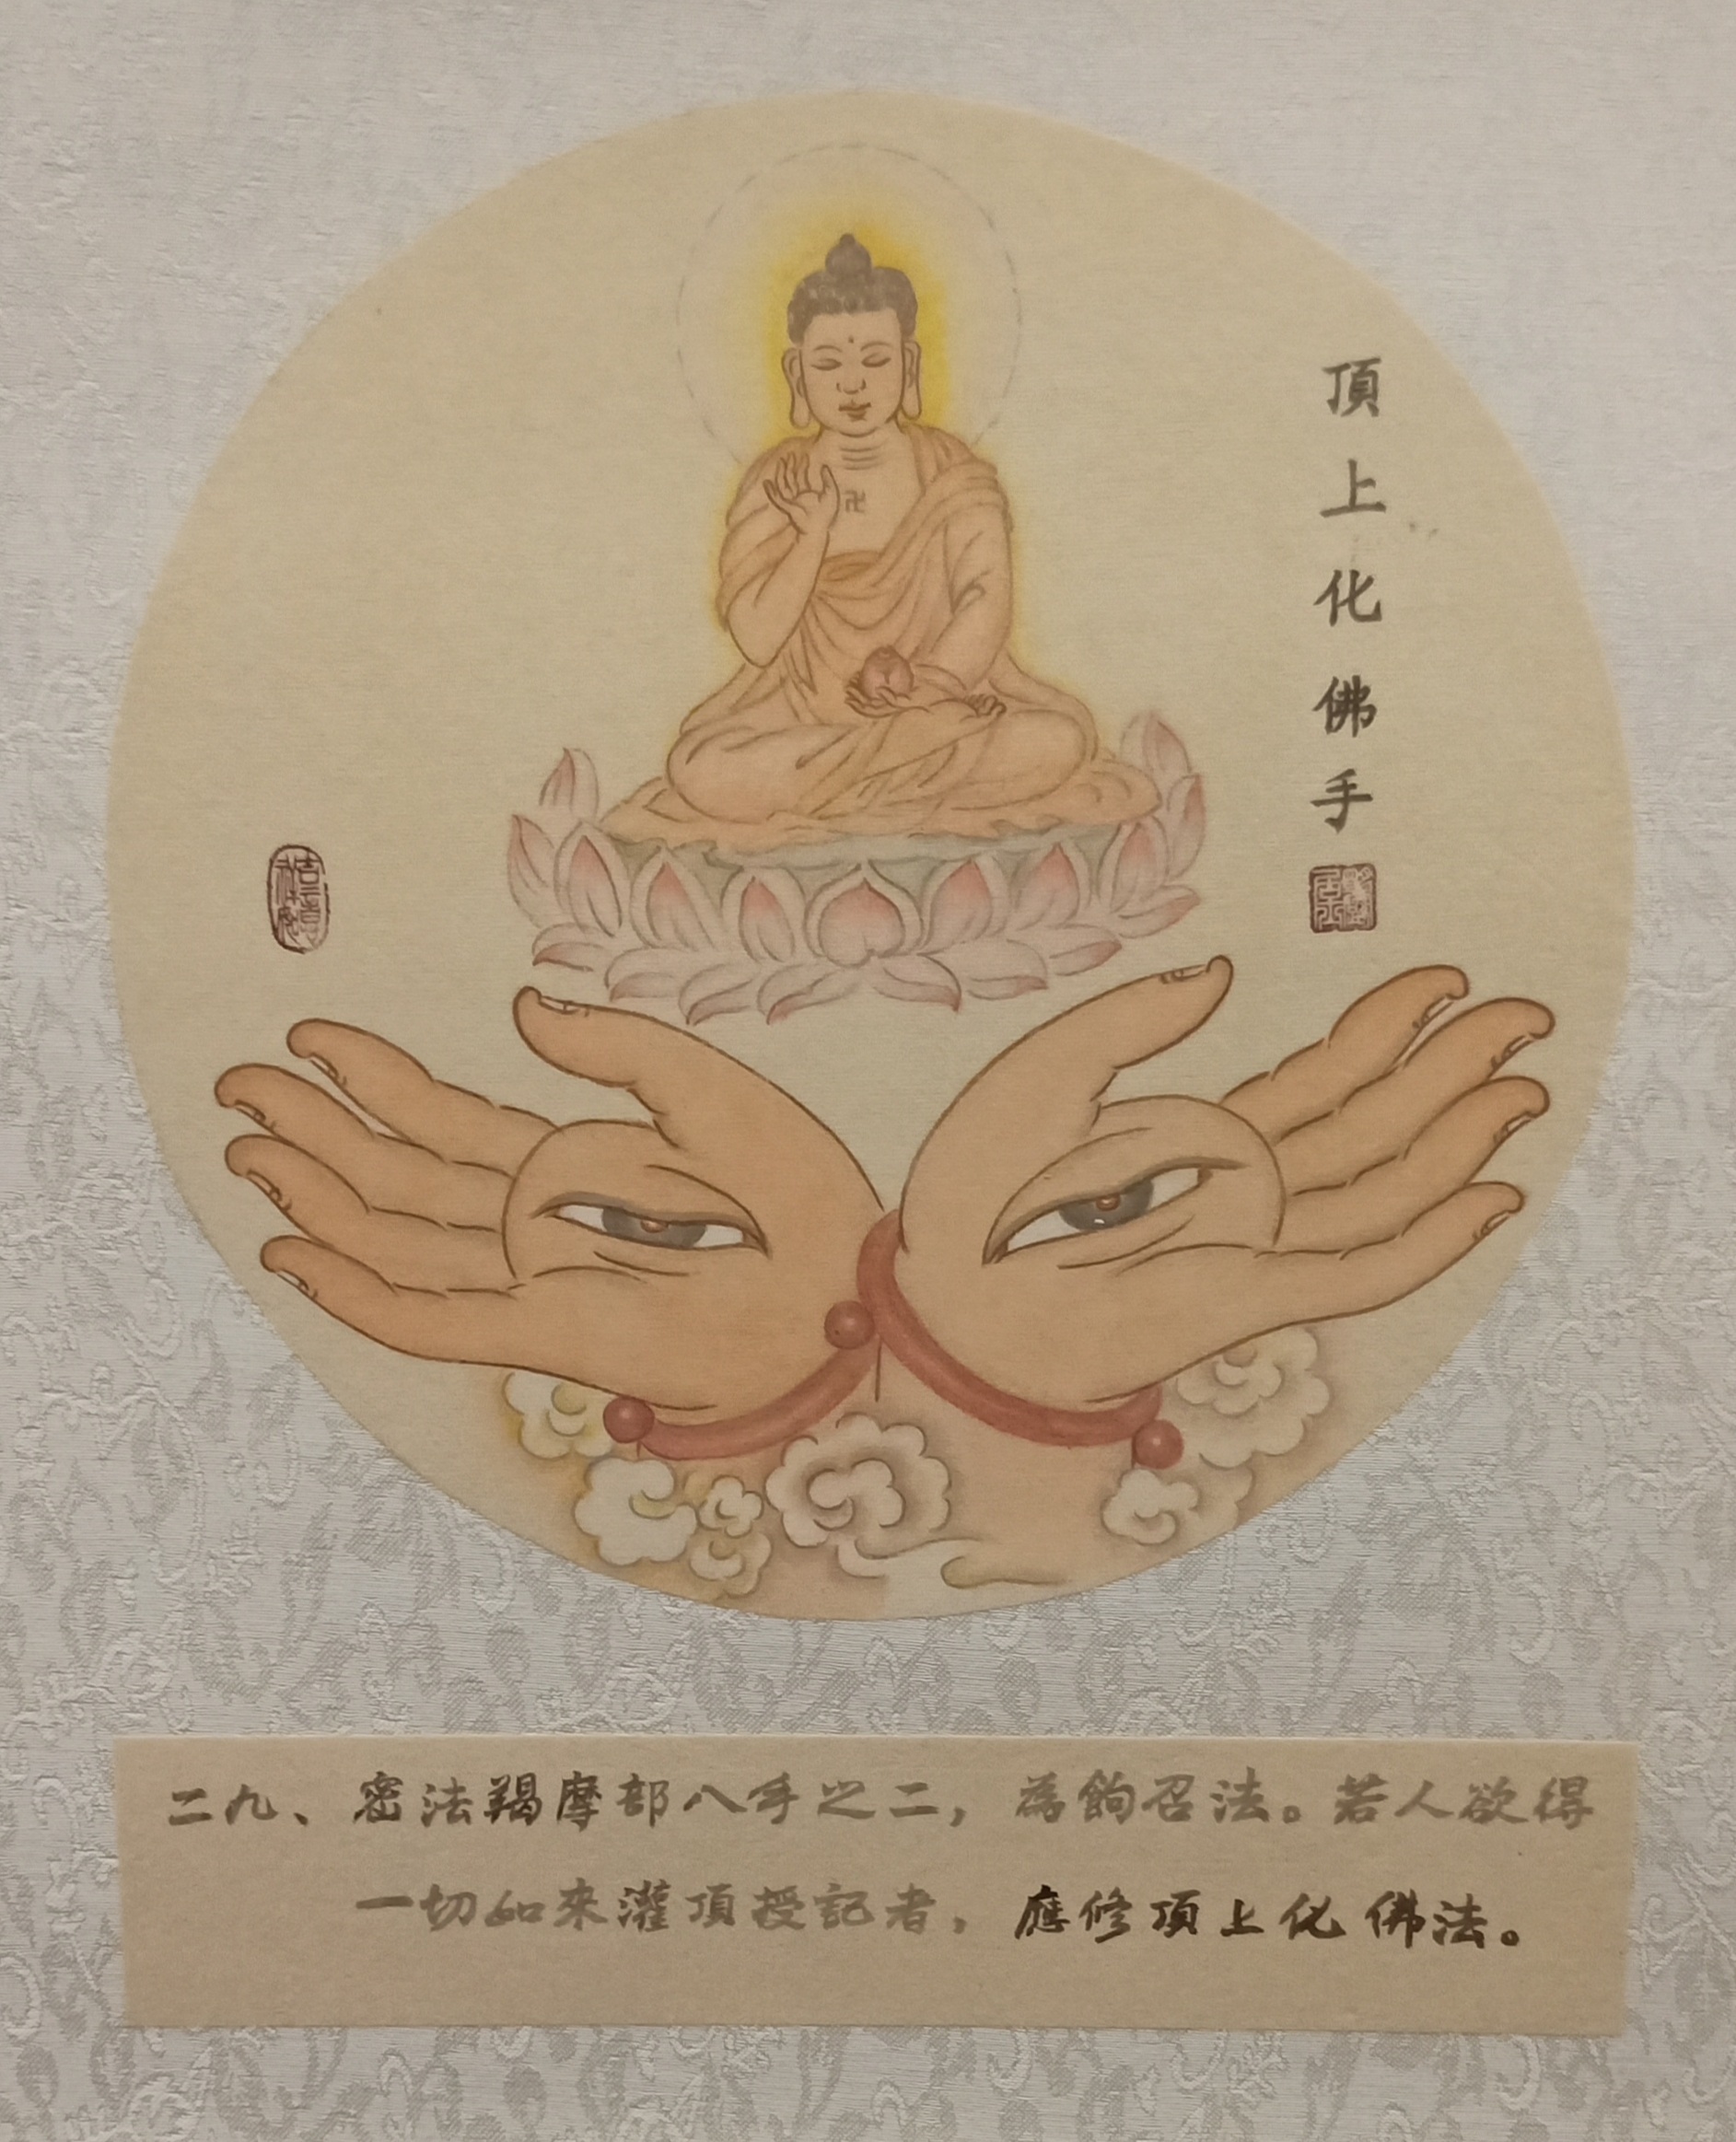 頂上化佛手
二九、密法羯摩部八手之二，為鉤召法。若人欲得
一切如來灌頂授記者，應修頂上化佛法。